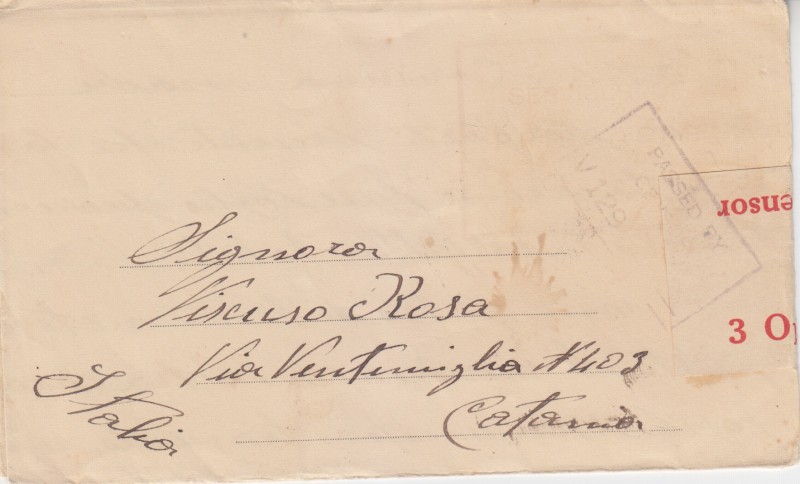 PASSED BY
V 129
ensor
3 O
Signora
Viscuso Rosa
Via Ventimiglia N 403
Catania
Italia